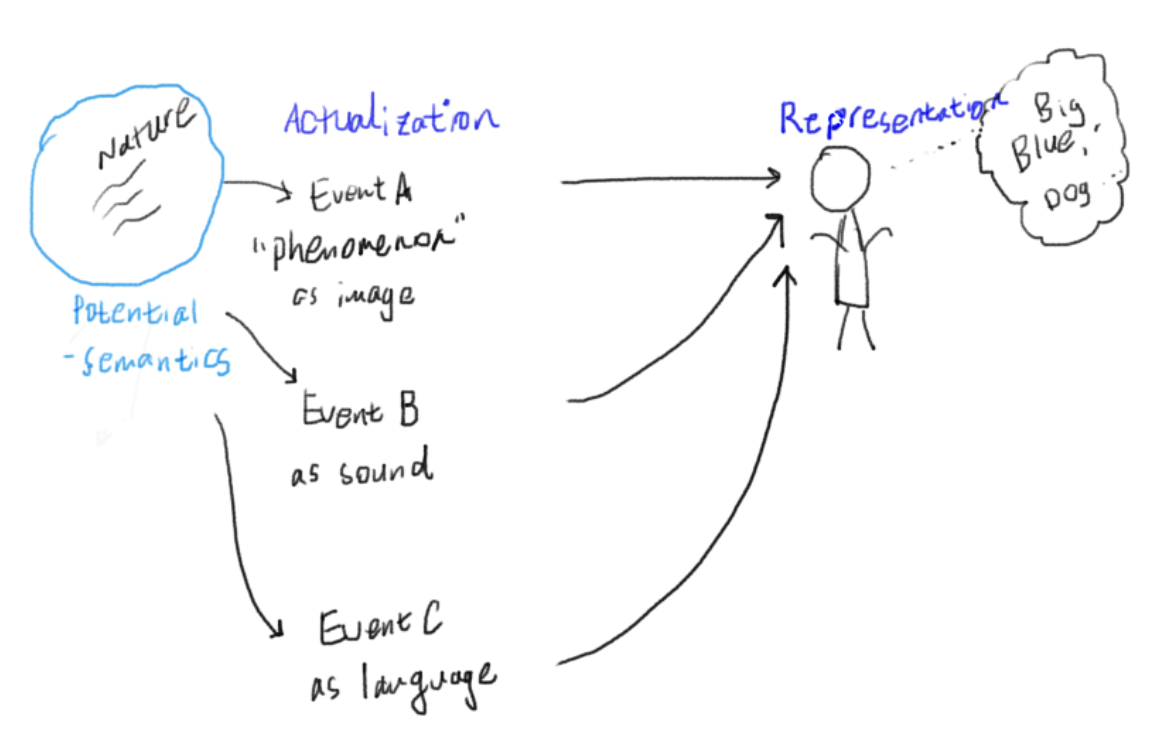 Nature
Potential
-semantics
Actualization
Event A
"phenomenon"
as image
Event B
as sound
Event C
as language
Representation
Big
Blue,
Dog